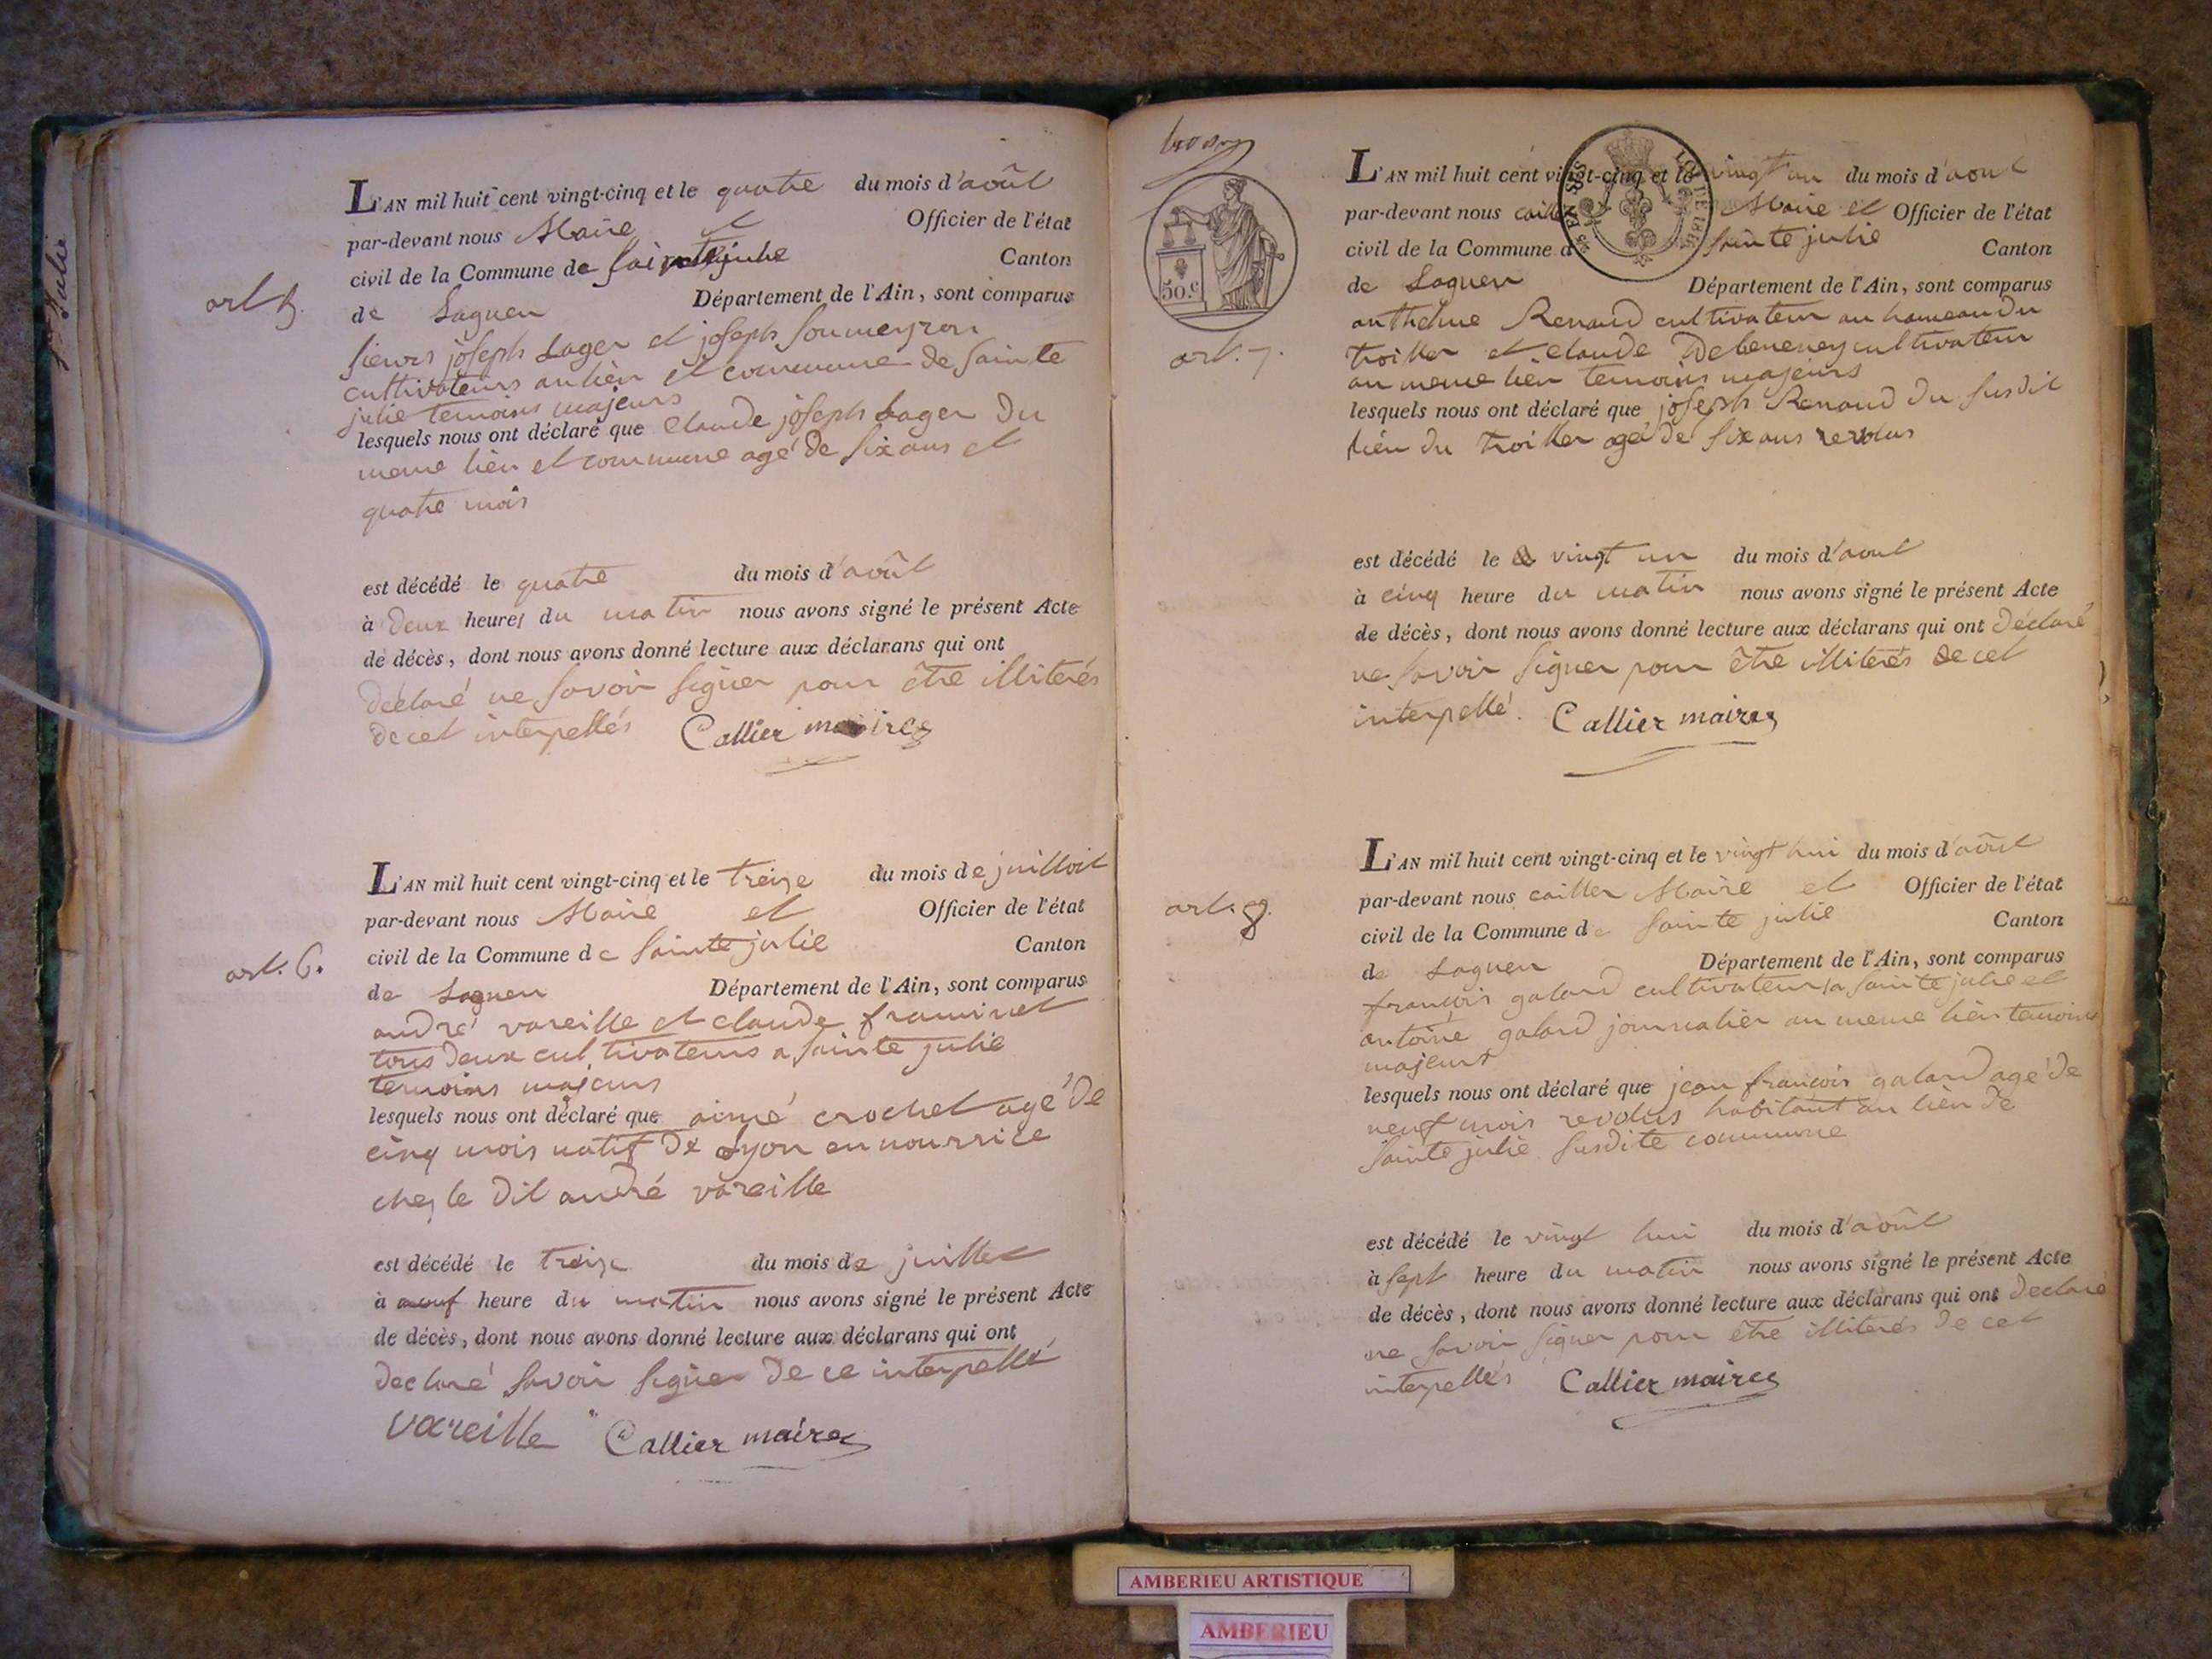 Ste Julie
art 5.
L'AN mil huit cent vingt-cinq et le quatre du mois d'août
par-devant nous Maire et Officier de l'état
civil de la Commune de sainte julie Canton
de Lagueu Département de l'Ain, sont comparus
sieurs joseph Lager et joseph soumeyron
cultivateurs au lieu et commune de sainte
julie temoins majeurs
lesquels nous ont déclaré que claude joseph Lager du
meme lieu et commune agé de six ans et
quatre mois
est décédé le quatre du mois d'août
à deux heures du matin nous avons signé le présent Acte
de décès, dont nous avons donné lecture aux déclarans qui ont
déclaré ne savoir signer pour être illiterés
de cet interpellés Callier maire
art. 6.
L'AN mil huit cent vingt-cinq et le treize du mois de juilloit
par-devant nous Maire et Officier de l'état
civil de la Commune de sainte julie Canton
de Lagueu Département de l'Ain, sont comparus
andré vareille et claude framinet
tous deux cultivateurs a sainte julie
temoins majeurs
lesquels nous ont déclaré que aimé crochet agé de
cinq mois natif de Lyon en nourrice
chez le dit andré vareille
est décédé le treize du mois de juillet
à neuf heure du matin nous avons signé le présent Acte
de décès, dont nous avons donné lecture aux déclarans qui ont
declaré savoir signer de ce interpellé
vareille Callier maire
50.c
art. 7.
L'AN mil huit cent vingt-cinq et le vingt un du mois d'aout
par-devant nous cailler Maire et Officier de l'état
civil de la Commune de sainte julie Canton
de Lagueu Département de l'Ain, sont comparus
anthelme Renaud cultivateur au hameau du
troiller et claude Debeneney cultivateur
au meme lieu temoins majeurs
lesquels nous ont déclaré que joseph Renaud du susdit
lieu du troiller agé de six ans revolus
est décédé le vingt un du mois d'aout
à cinq heure du matin nous avons signé le présent Acte
de décès, dont nous avons donné lecture aux déclarans qui ont déclaré
ne savoir signer pour être illiterés de cet
interpellé. Callier maire
art. 8.
L'AN mil huit cent vingt-cinq et le vingt hui du mois d'août
par-devant nous cailler Maire et Officier de l'état
civil de la Commune de sainte julie Canton
de Lagueu Département de l'Ain, sont comparus
françois galand cultivateur a sainte julie et
antoine galand journalier au meme lieu temoins
majeurs
lesquels nous ont déclaré que jean françois galand agé de
neuf mois revolus habitant au lieu de
sainte julie susdite commune
est décédé le vingt hui du mois d'août
à sept heure du matin nous avons signé le présent Acte
de décès, dont nous avons donné lecture aux déclarans qui ont declaré
ne savoir signer pour être illiterés de cet
interpellés Callier maire
AMBERIEU ARTISTIQUE
AMBERIEU